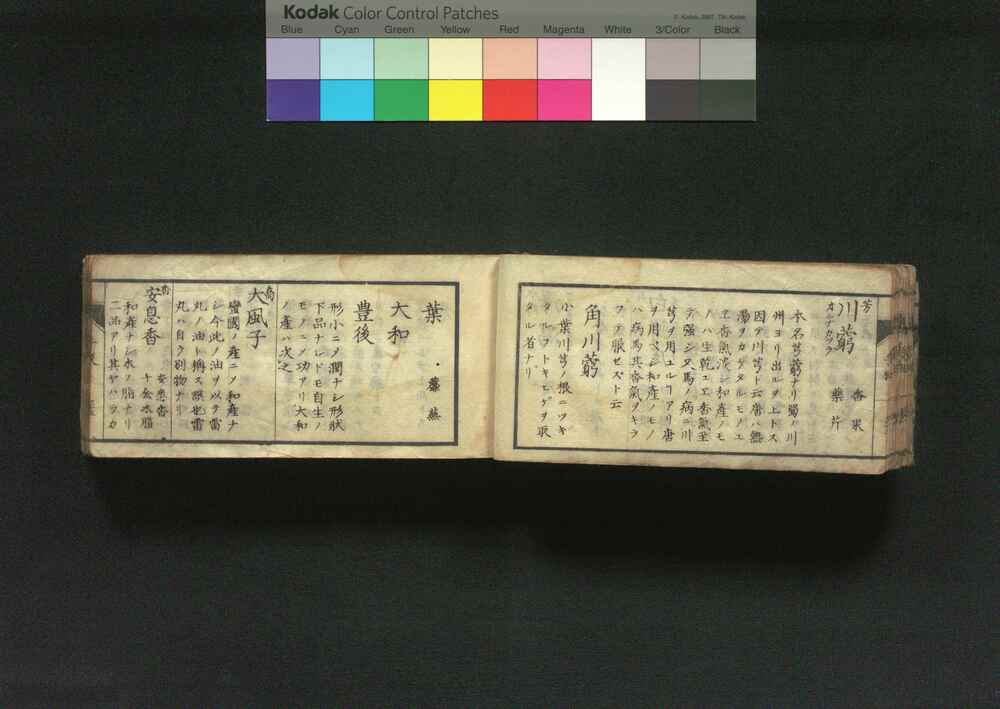 Kodak Color Control Patches
© Kodak, 2007 TM: Kodak
Blue Cyan Green Yellow Red Magenta White 3/Color Black
芳
川藭
カンナカツラ
香果
藥芹
本名芎藭ナリ蜀ノ川
州ヨリ出ルヲ上トス
因テ川芎ト云唐ハ𤍠
湯ヲカケタルモノユ
ヱ香氣淡シ和産ノモ
ノハ生乾ユヱ香氣至
テ強シ又馬ノ病ニ川
芎ヲ用ユルアリ唐
ヲ用ベシ和産ノモノ
ハ病馬其香氣ヲキラ
フテ服セスト云
角川藭
小葉川芎ノ根ニツキ
タルヲトキヒゲヲ取
タル者ナリ
葉
蘼蕪
大和
豊後
形小ニメ潤ナシ形狀
下品ナレドモ自生ノ
モノニメ功アリ大和
ノ産ハ次之
大風子
蠻國ノ産ニメ和産ナ
シ今此ノ油ヲ以テ雷
丸ノ油ト稱ス誤也雷
丸ハ自ラ別物ナリ
安息香
安悉香
千金木脂
和産ナシ木ノ脂ナリ
二品アリ其ヤハラカ